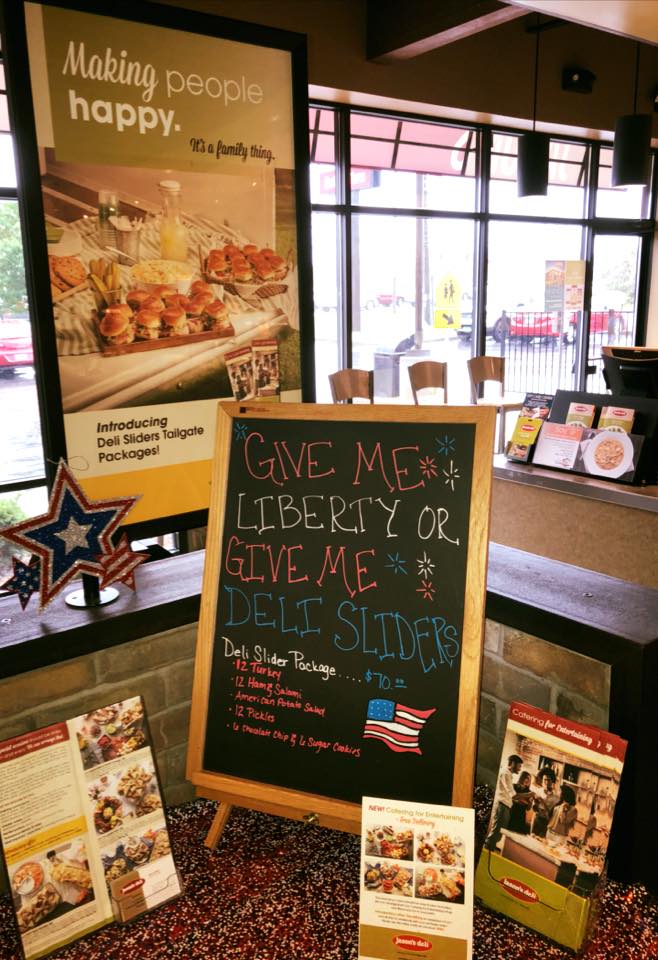 Making people
happy.
It's a family thing.
Introducing
Deli Sliders Tailgate
Packages!
GIVE ME
LIBERTY OR
GIVE ME
DELI SLIDERS
Deli Slider Package.... $70.00
• 12 Turkey
• 12 Ham & Salami
• American Potato Salad
• 12 Pickles
• 6 Chocolate Chip & 6 Sugar Cookies
NEW! Catering for Entertaining
- Free Delivery
Jason's deli
Catering for Entertaining
Jason's deli